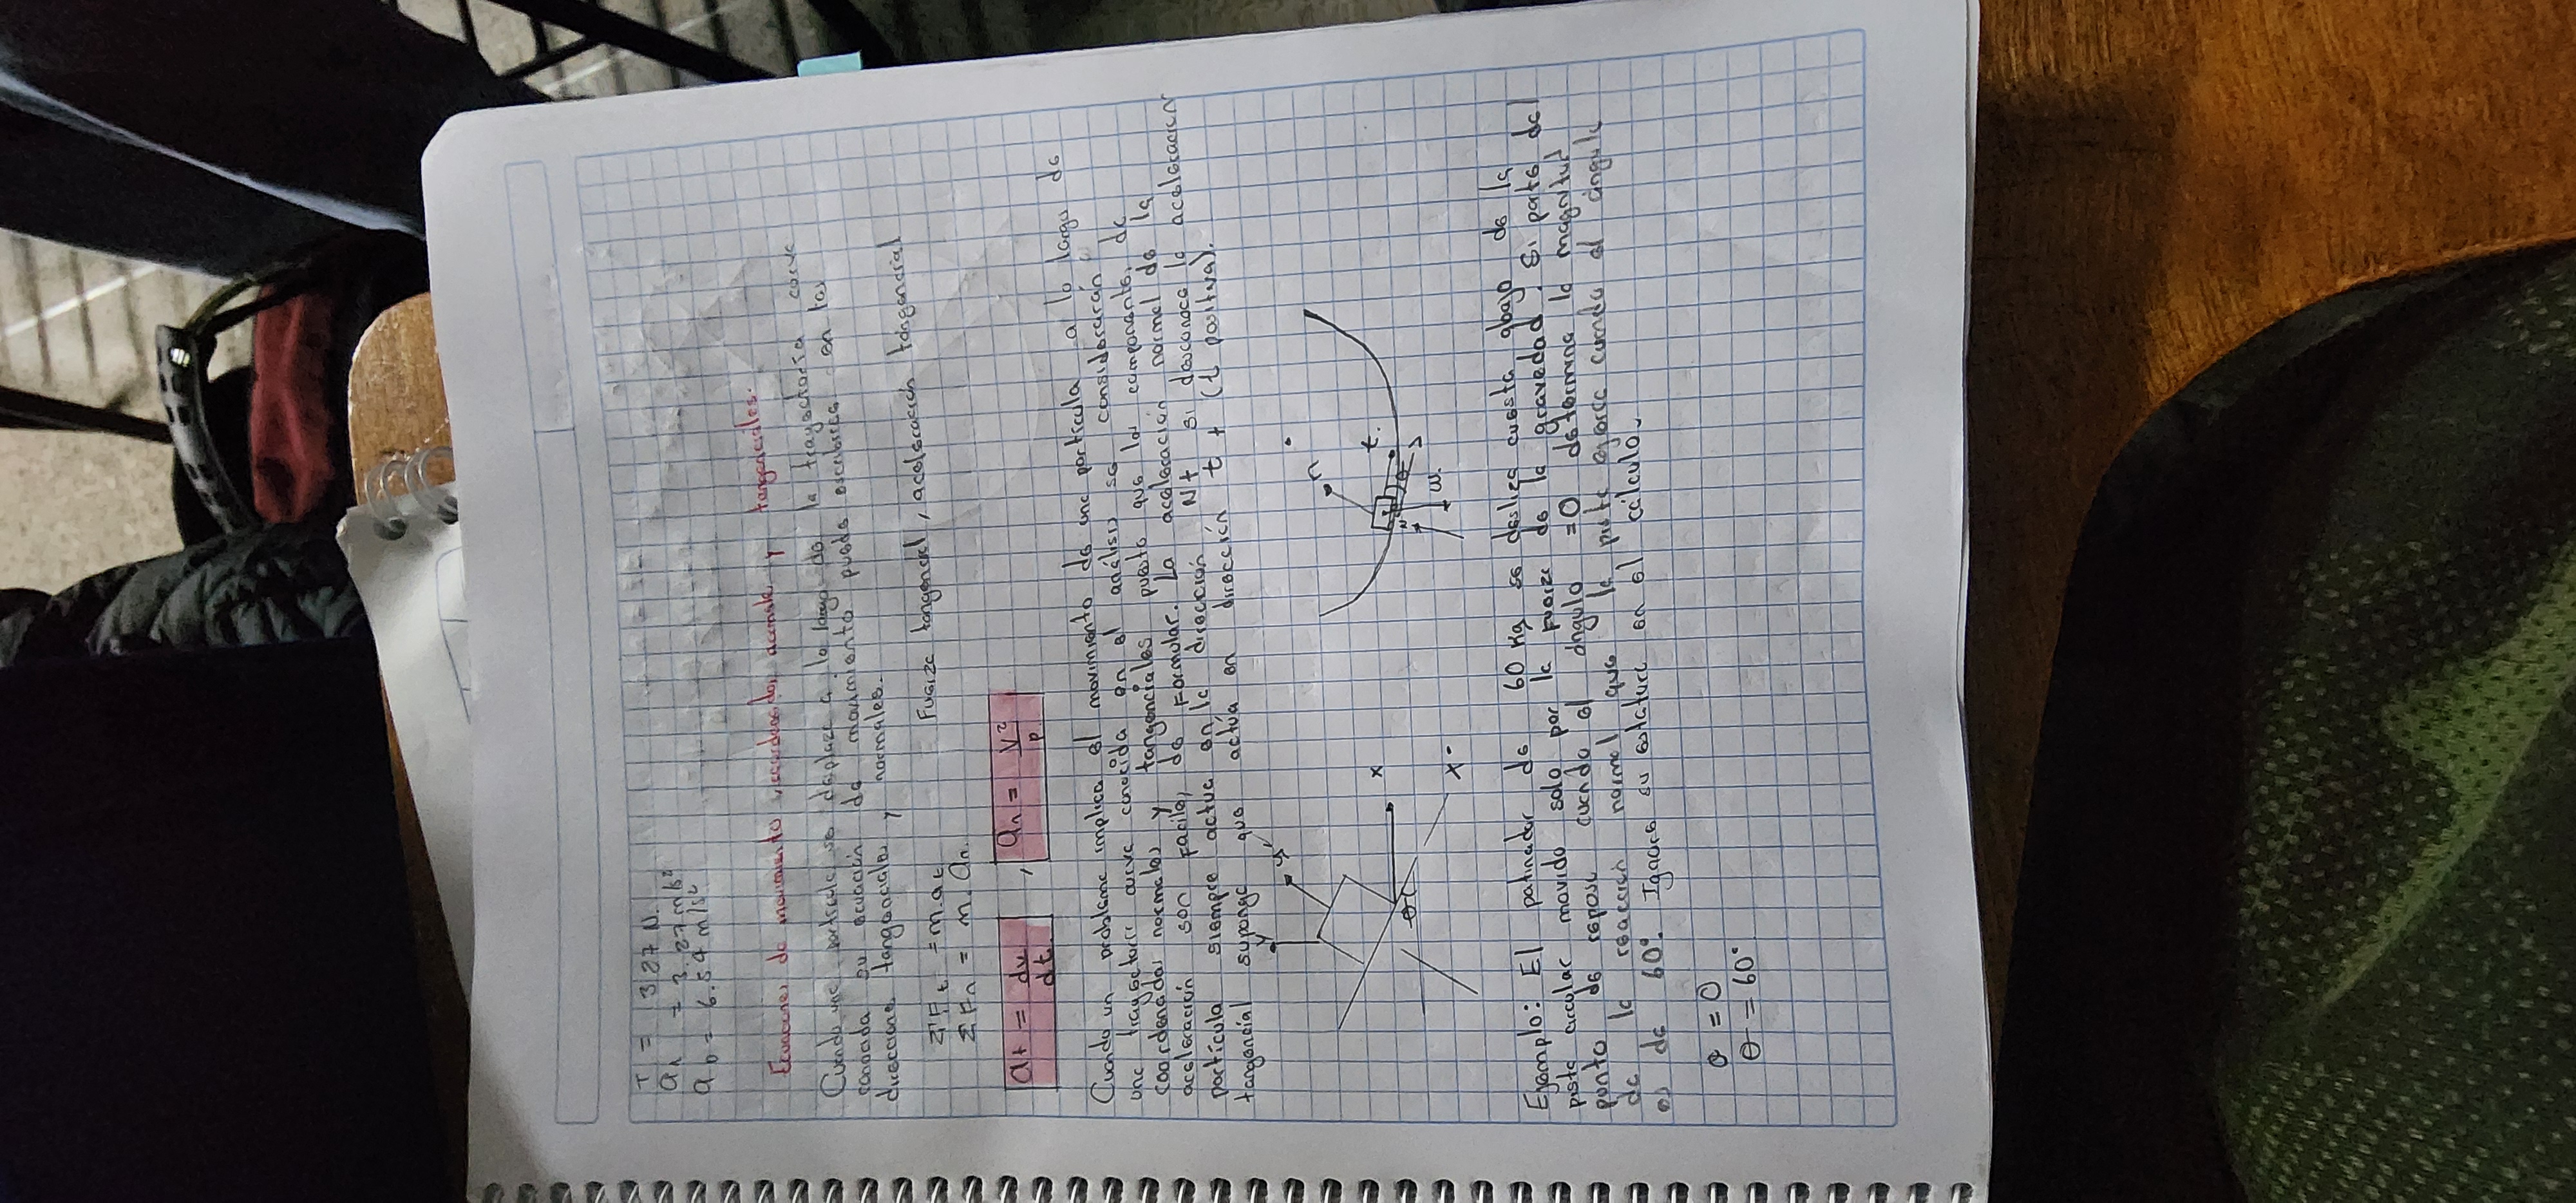 T = 3.27 N.
a = 3.27 m/s²
a b = 6.54 m/s²
Ecuaciones de movimiento, coordenadas normales y tangenciales.
Cuando una particula se desplaza a lo largo de la trayectoria curva
conocida su ecuación de movimiento puede escribirse en las
direcciones tangenciales y normales.
ΣFt = m.at Fuerza tangencial, aceleración tangencial
ΣFn = m. an.
at = dv/dt. , an = v²/p.
Cuando un problema implica el movimiento de una particula a lo largo de
una trayectoria curva conocida en el análisis se considerarán
coordenadas normales y tangenciales puesto que los componentes de
aceleración son faciles de formular. La aceleración normal de la
partícula siempre actúa en la dirección N+ si desconoce la aceleración
tangencial suponga que actúa en dirección t + (t positiva).
y y' n
x t.
θ N θ
x' w.
Ejemplo: El patinador de 60 Kg se desliza cuesta abajo de la
pista circular movido solo por la fuerza de la gravedad. Si parte del
punto de reposo cuando el ángulo =0 determina la magnitud
de la reacción normal que la pista ejerce cuando el ángulo
es de 60°. Ignore su estatura en el cálculo.
θ = 0
θ = 60°